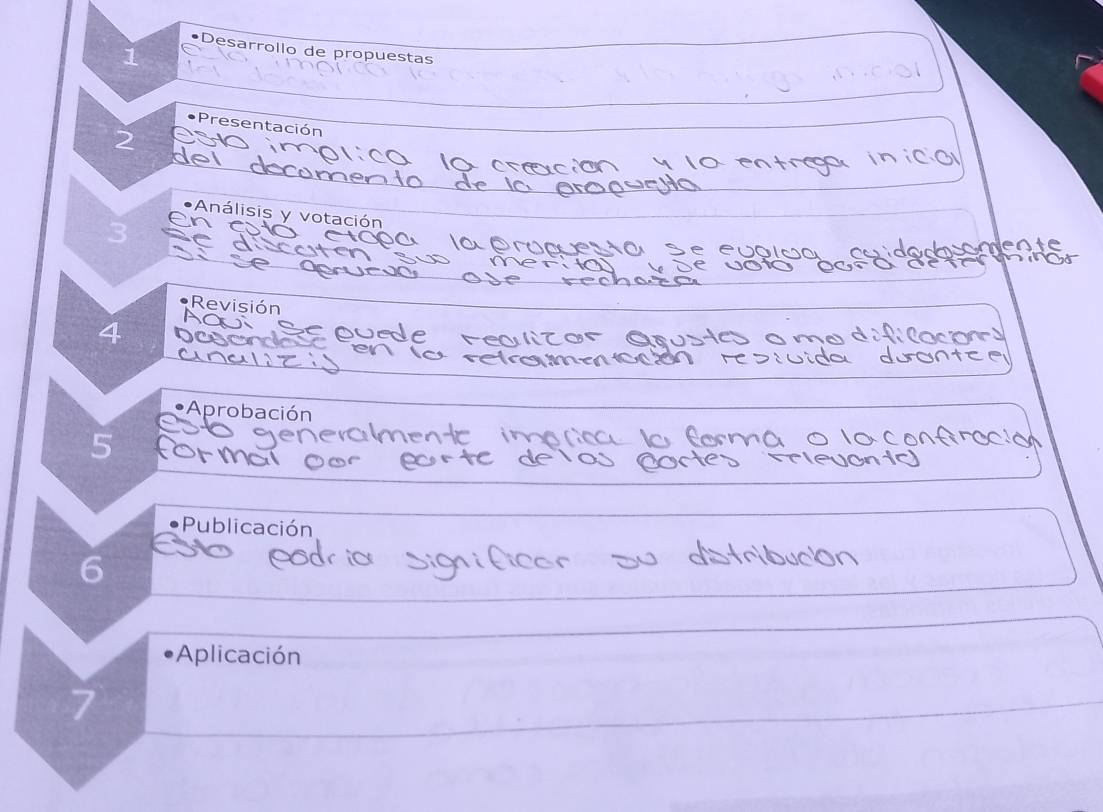 1
•Desarrollo de propuestas
2
•Presentación
esto implica la creacion y la entrega inicial
del documento de la propuesta
3
•Análisis y votación
En esta etapa la propuesta se evalua cuidadosamente
se discuten sus meritos y se vota para determinar
si se aprueva ose rechaza
4
•Revisión
Aqui se puede realizar agustes o modifilacones
basandose en la retroimentacion resivida durante el
analizis
5
•Aprobación
esto generalmente implica la forma o la confiracion
formal por parte delas partes relevantes
6
•Publicación
esto podria significar su distribucion
7
•Aplicación